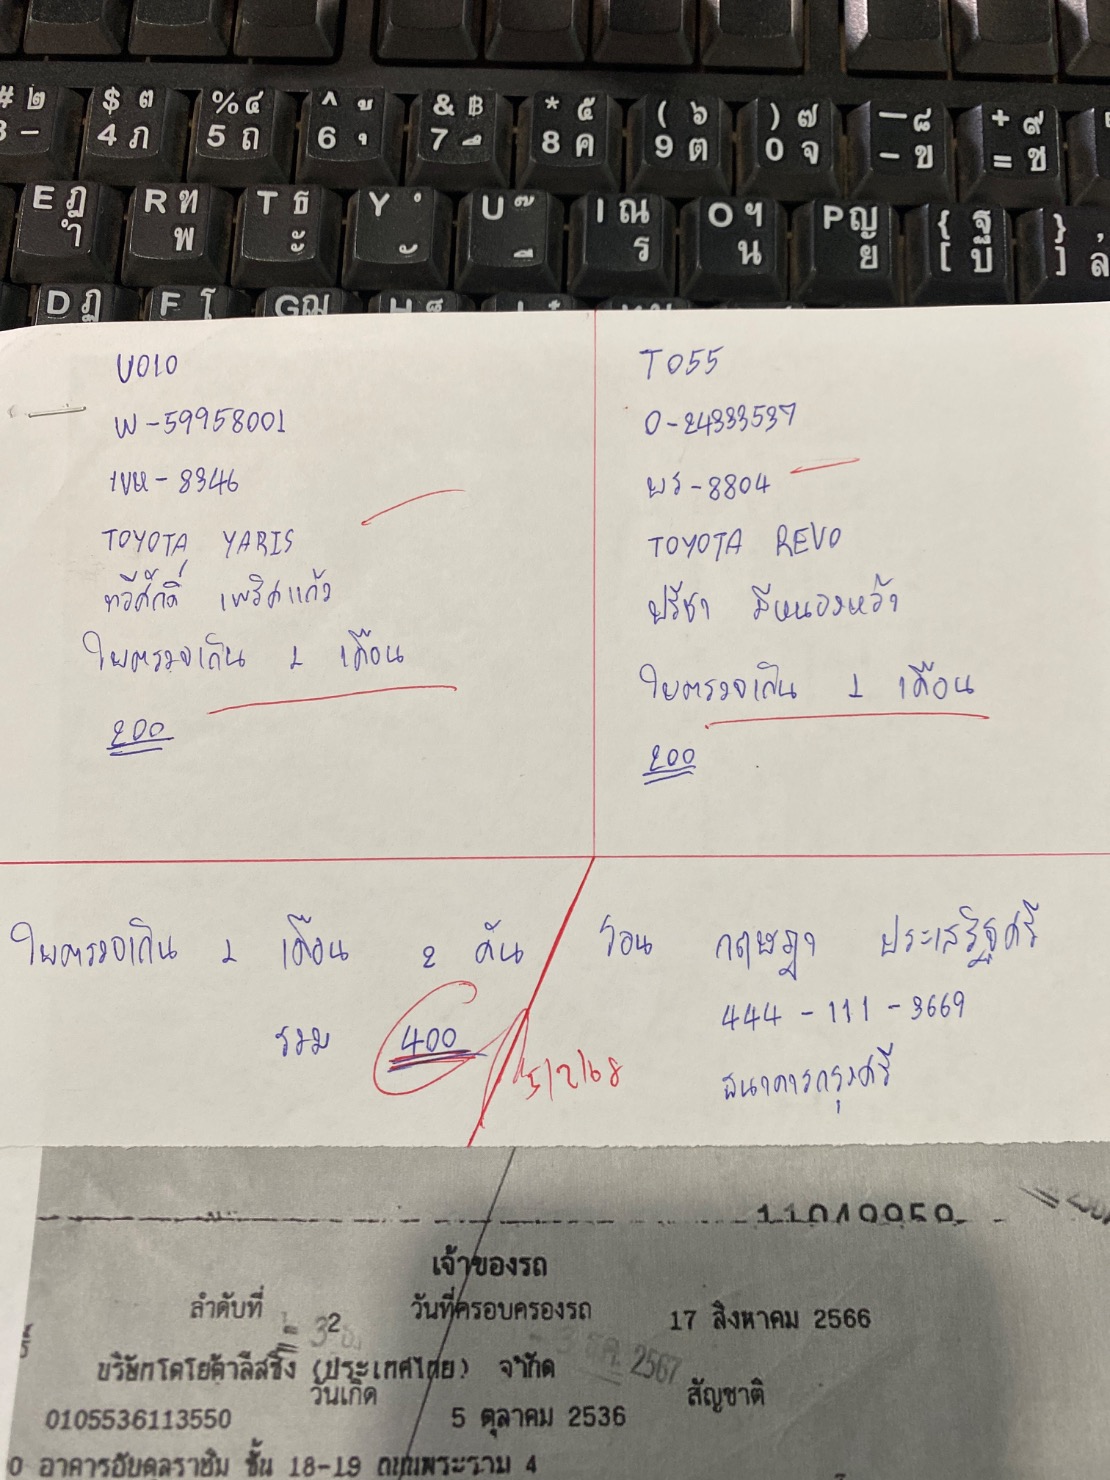 # ๒ $ ๓ % ๔ ^ ข & ฿ * ๕ ( ๖ ) ๗ — ๘ + ๙
3 - 4 ภ 5 ถ 6 ุ 7 ึ 8 ค 9 ต 0 จ - ข = ช
E ฎ R ฑ T ธ Y ํ U ๊ I ณ O ฯ P ญ { ฐ }
ำ พ ะ ั ี ร น ย [ บ ] ล
D ฏ F โ G ฌ H
U010
W-59958001
1ขห-8346
TOYOTA YARIS
ทวีศักดิ์ เพริศแก้ว
ใบตรวจเกิน 1 เดือน
200
T055
O-24333537
พร-8804
TOYOTA REVO
ปรีชา มีหนองหว้า
ใบตรวจเกิน 1 เดือน
200
ใบตรวจเกิน 1 เดือน 2 คัน
รวม 400
5/2/68
โอน กฤษฎา ประเสริฐศรี
444-111-3669
ธนาคารกรุงศรี
11049959
เจ้าของรถ
ลำดับที่ 2 วันที่ครอบครองรถ 17 สิงหาคม 2566
2567
บริษัทโตโยต้าลีสซิ่ง (ประเทศไทย) จำกัด
วันเกิด สัญชาติ
0105536113550 5 ตุลาคม 2536
อาคารอับดุลราฮิม ชั้น 18-19 ถนนพระราม 4